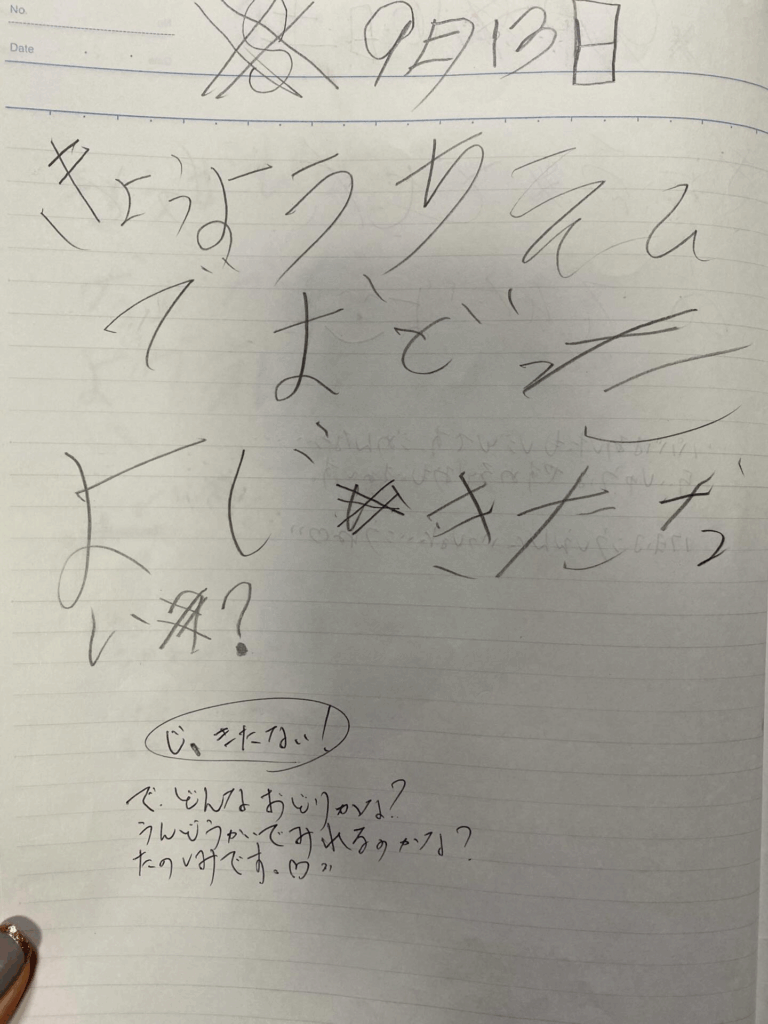 No.
Date
9月13日
きょうようちえん
でおどった
よじきたな
い?
じ、きたない!
で、どんなおどりかな?
うんどうかいでみれるのかな?
たのしみです。♡